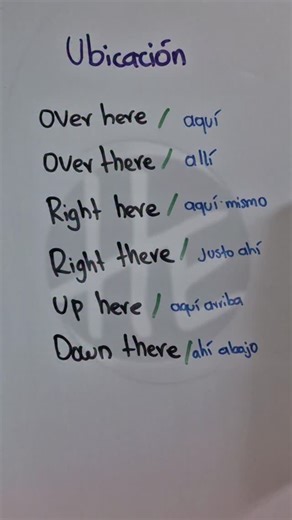 Ubicación
Over here / aquí
Over there / allí
Right here / aquí mismo
Right there / Justo ahí
Up here / aquí arriba
Down there / ahí abajo